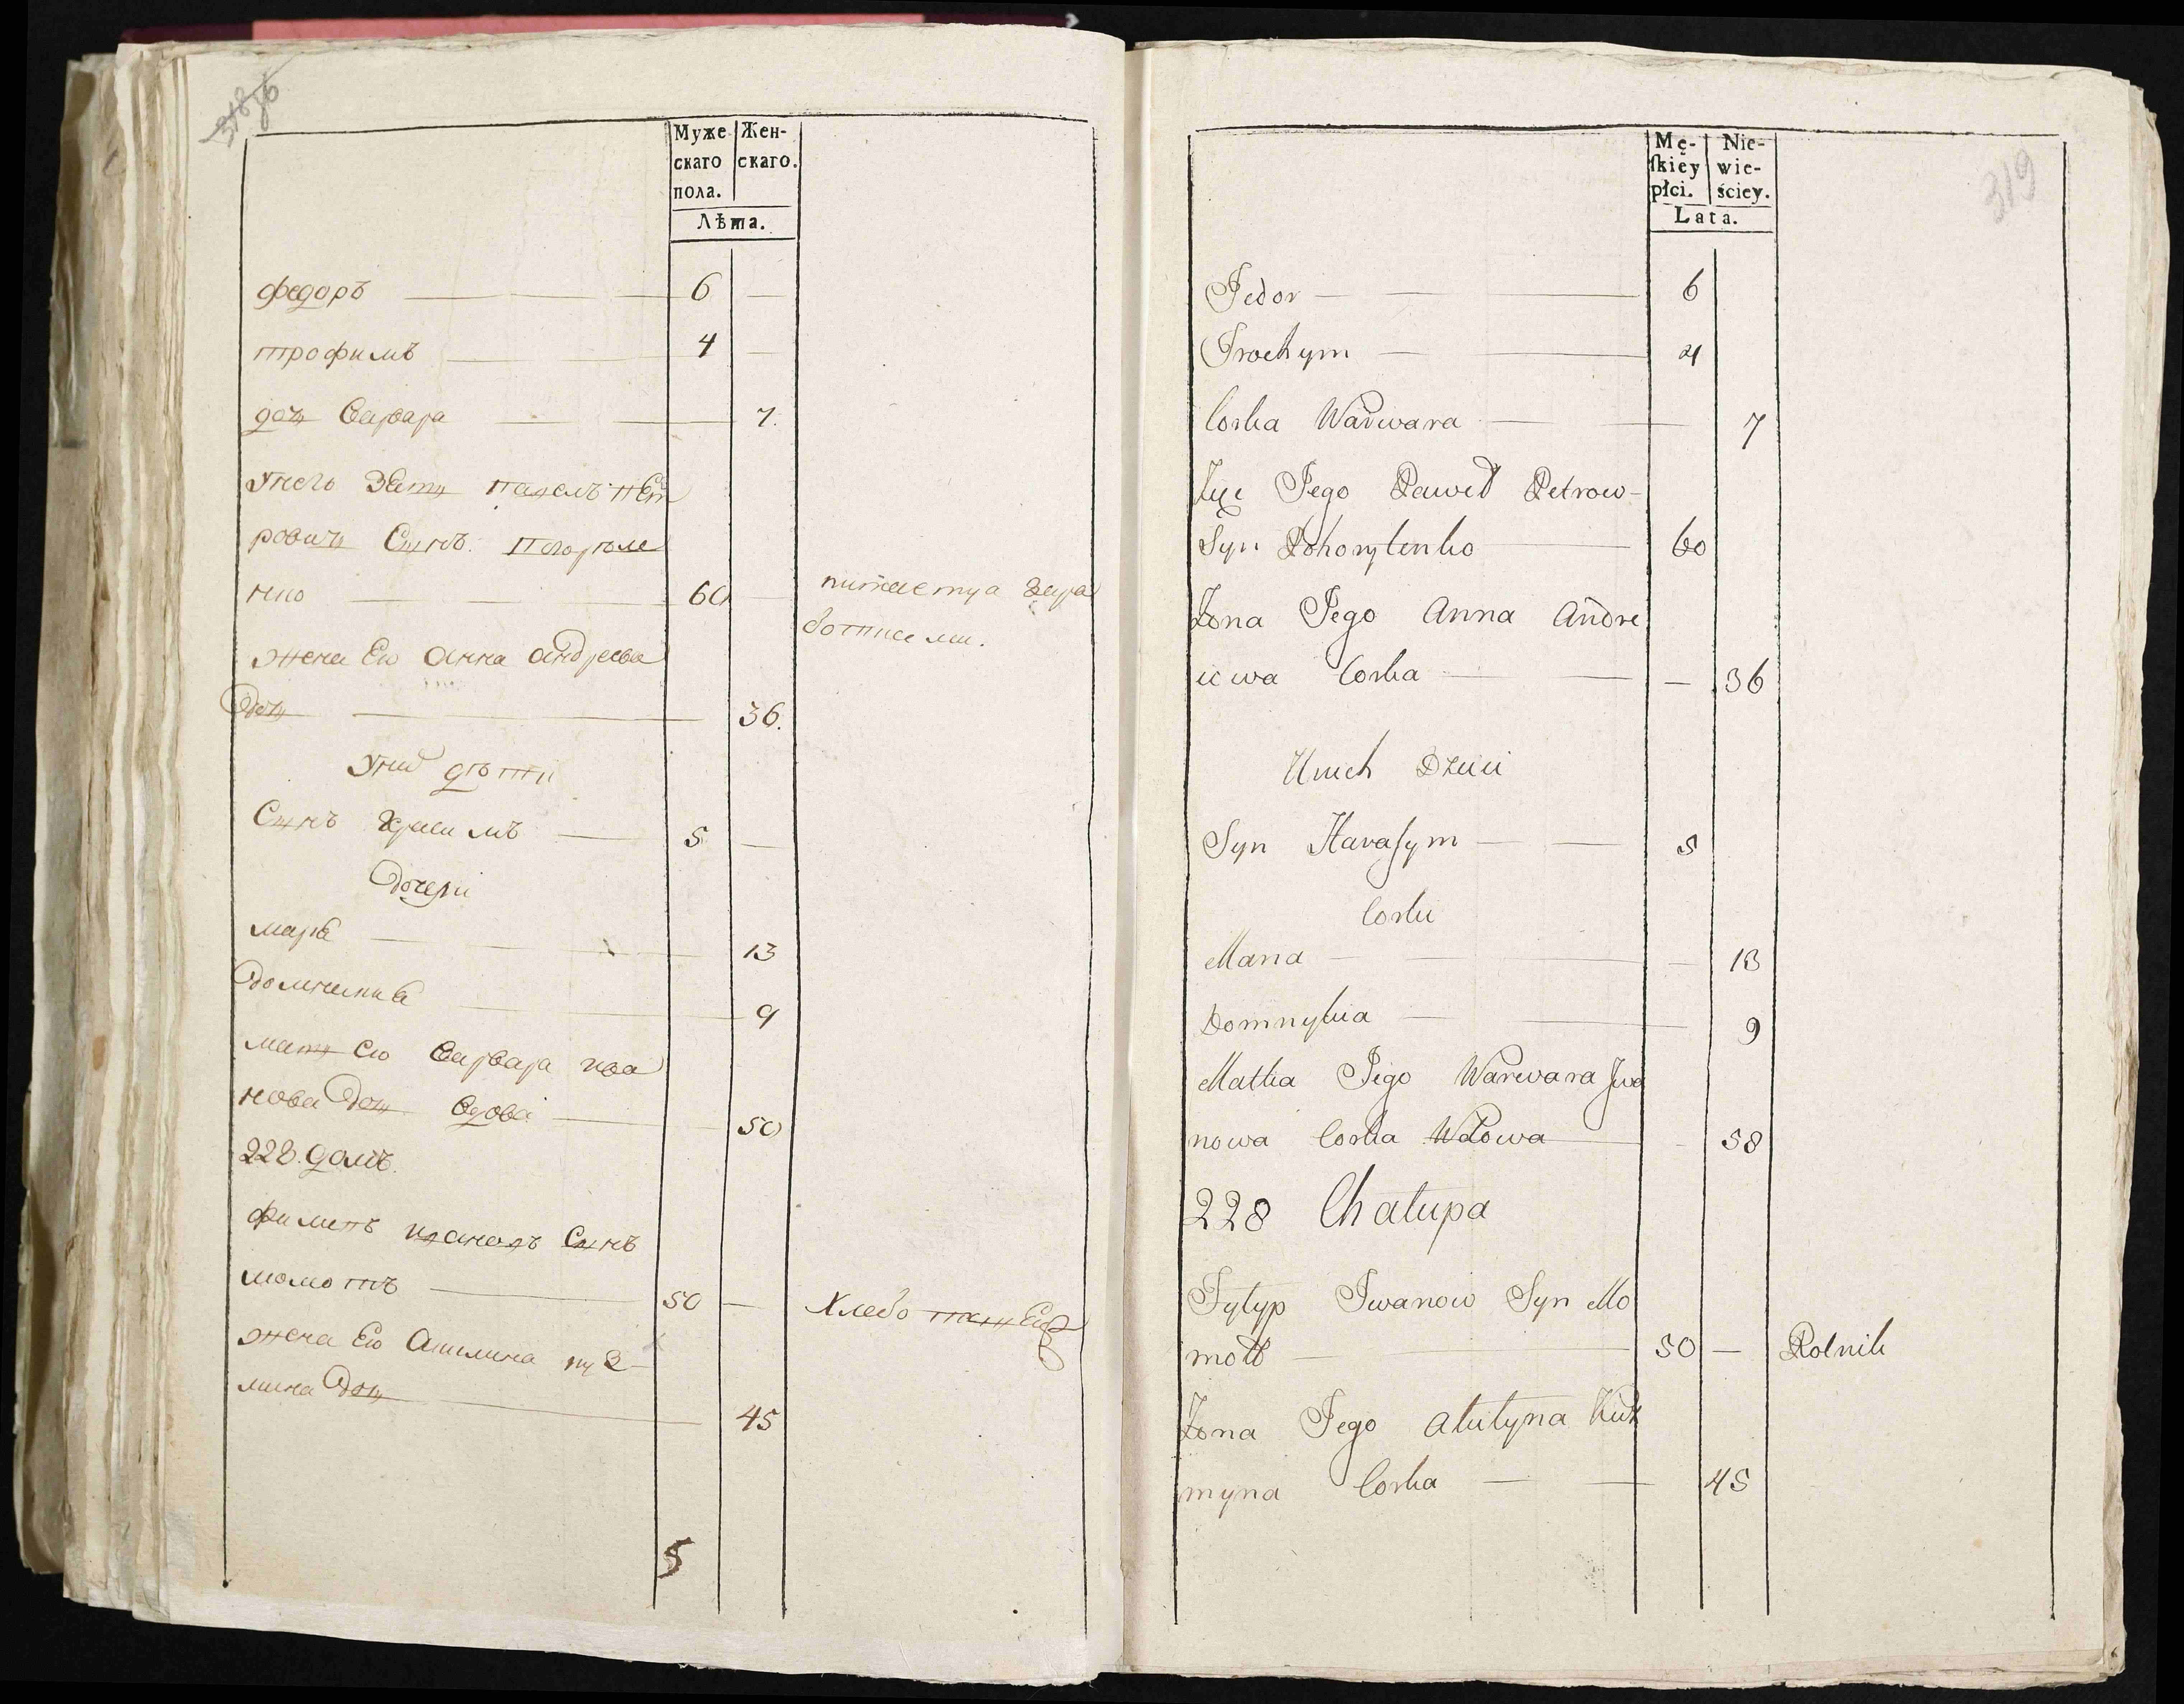 318 об
Муже Жен-
скаго скаго.
пола.
Лѣта.
федоръ 6
трофимъ 4
дочь Варвара 7.
Унего Зять павелъ Пет
ровичъ Сынъ Погорѣле
нко 60 питается Зара
ботками.
жена Его Анна Андреева
Дочь 36.
Унихъ дѣти
Сынъ Харасимъ 5
Дочери
марія 13
Домникія 9
мать Его Варвара ива
нова Дочь вдова 50
228. домъ.
филипъ ивановъ Сынъ
момотъ 50 Хлебо пашецъ
жена Его Акилина куз
мина Дочь 45
5
319
Mę- Nie-
ſkiey wie-
płci. ściey.
Lata.
Fedor 6
Trochym 4
Corka Warwara 7
Zięć Jego Paweł Petrow
Syn Pohorylenko 60
Zona Jego Anna Andre
iewa Corka 36
Unich Dzieci
Syn Haraſym 5
Corki
Maria 13
Domnykia 9
Matka Jego Warwara Jwa
nowa Corka Wdowa 58
228 Chałupa
Fylyp Jwanow Syn Mo
mot 50 Rolnik
Zona Jego Akilyna Kuz
myna Corka 45